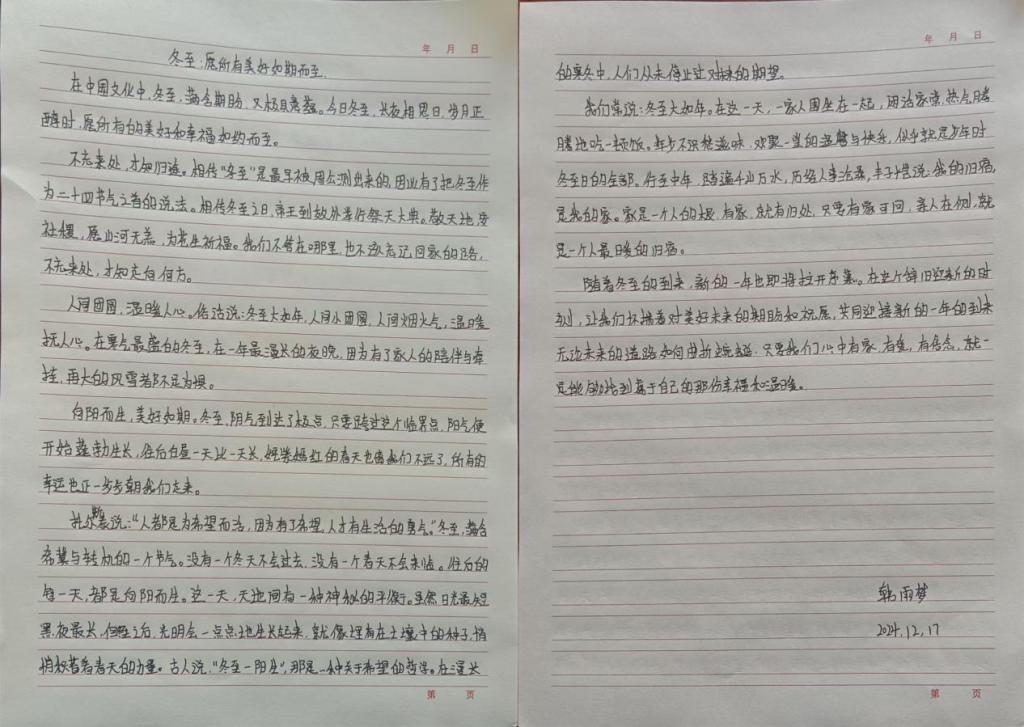 年 月 日
冬至:愿所有美好如期而至.
在中国文化中,冬至,满含期盼,又极具意蕴。今日冬至,长夜相思日,岁月正
醇时,愿所有的美好和幸福如约而至。
不忘来处,才知归途。相传“冬至”是最早被周公测出来的,因此有了把冬至作
为二十四节气之首的说法。相传冬至之日,帝王到故外举行祭天大典。敬天地
社稷,愿山河无恙,为苍生祈福。我们不管在哪里,也不该忘记回家的路,
不忘来处,才知走向何方。
人间团圆,温暖人心。俗话说:冬至大如年,人间小团圆,人间烟火气,温暖
抚人心。在寒气最盛的冬至,在一年最漫长的夜晚,因为有了家人的陪伴与牵
挂,再大的风雪都不足为惧。
向阳而生,美好如期。冬至,阴气到达了极点,只要跨过这个临界点,阳气便
开始蓬勃生长,往后白昼一天比一天长,姹紫嫣红的春天也离我们不远了,所有的
幸运也正一步步朝我们走来。
托尔斯泰说:“人都是为希望而活,因为有了希望,人才有生活的勇气。”冬至,满含
希冀与转机的一个节气。没有一个冬天不会过去,没有一个春天不会来临。往后的
每一天,都是向阳而生。这一天,天地间有一种神秘的平衡。虽然日光最短
黑夜最长,但至之后,光明会一点点地生长起来,就像埋有在土壤中的种子,悄
悄积蓄着春天的力量。古人说,“冬至一阳生”,那是一种关于希望的哲学。在漫长
第 页
年 月 日
的寒冬中,人们从未停止过对未来的期望。
我们常说:冬至大如年。在这一天,一家人围坐在一起,闲话家常,热气腾
腾地吃一顿饭。年少不识愁滋味,欢聚一堂的温馨与快乐,似乎就是少年时
冬至日的全部。行至中年,踏遍千山万水,历经人事沧桑,丰子恺说:我的归宿,
是我的家。家是一个人的根,有家,就有归处,只要有家可回,亲人在侧,就
是一个人最日暖的归宿。
随着冬至的到来,新的一年也即将拉开序幕。在这个辞旧迎新的时
刻,让我们怀揣着对美好未来的期盼和祝愿,共同迎接新的一年的到来
无论未来的道路如何曲折蜿蜒,只要我们心中有家,有爱,有信念,就一
定能够找到属于自己的那份幸福和温暖。
韩雨梦
2024.12.17
第 页